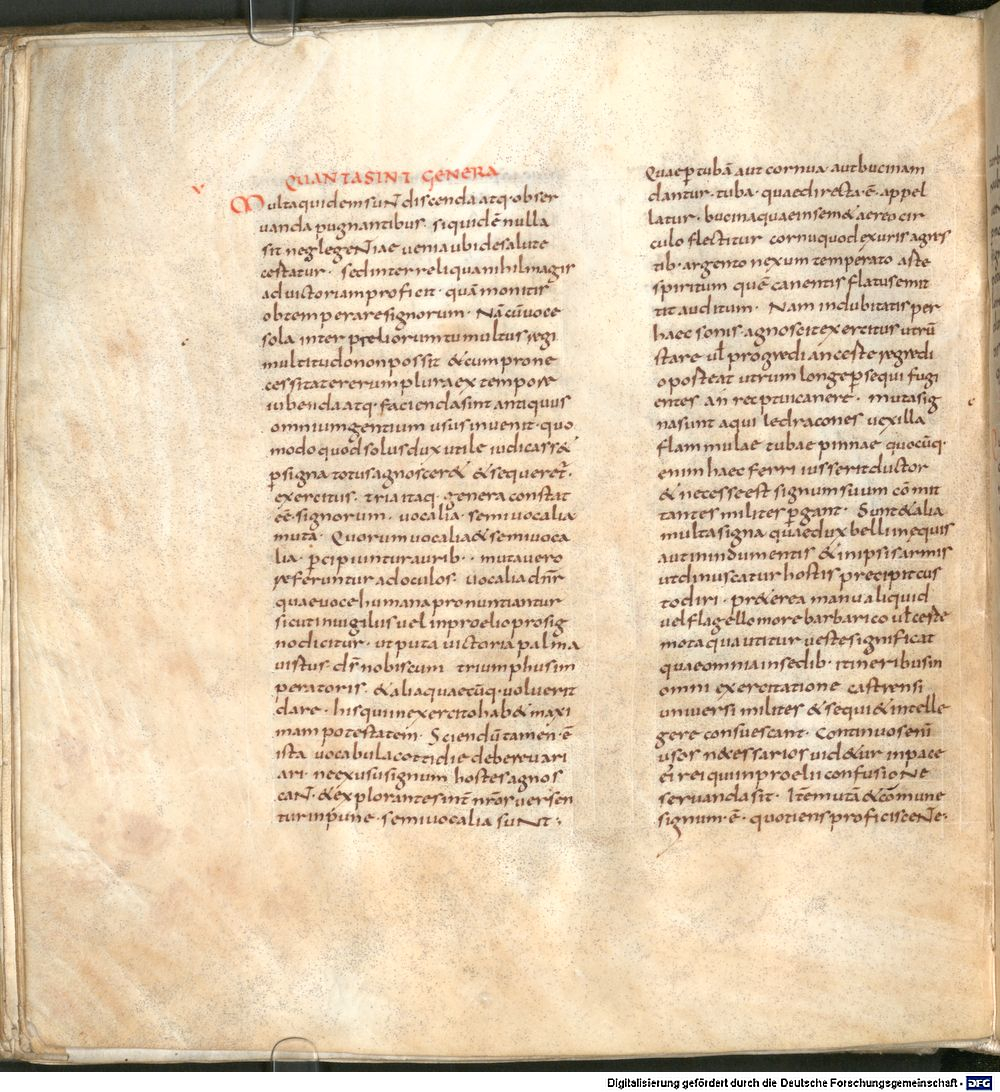 v
QUANTA SINT GENERA
Multa quidem sunt discenda atq· obser
uanda pugnantibus· siquidē nulla
sit neglegentiae uenia ubi de salute
certatur· sed inter reliqua nihil magis
ad uictoriam proficit· quā monitis
obtemperare signorum· Nā cū uoce
sola inter preliorum tumultus regi
multitudo non possit & cum pro ne
cessitate rerum plura ex tempore
iubenda atq· facienda sint antiquus
omnium gentium usus inuenit· quo
modo quod solus dux utile iudicass&
p̱ signa totus agnoscer& & sequeret̄·
exercitus· tria itaq· genera constat
eē signorum· uocalia· semiuocalia
muta· Quorum uocalia & semiuoca
lia· p̱cipiuntur aurib·· muta uero
referuntur ad oculos· uocalia dn̄r
quae uoce humana pronuntiantur
sicut in uigilus uel in proelio pro sig
no dicitur· ut puta uictoria palma
uirtus ds̄ nobiscum triumphus im
peratoris· & alia quaecūq· uoluerit
dare· his qui in exercito hab& maxi
mam potestatem· Sciendū tamen ē
ista uocabula cottidie debere uari
ari· ne ex usu signum hostes agnos
cant· & explorantes int̄ nr̄os uersen
tur inpune· semiuocalia sunt·
Quae p̱ tubā aut cornua· aut bucinam
dantur· tuba· quae directa ē· appel
latur· bucina quae in sem& aereo cir
culo flectitur cornu quod ex uris agres
tib· argento nexum temperato arte
spiritum quē canentis flatus emit
tit auditum· Nam indubitatis per
haec sonis· agnoscit exercitus utrū
stare ut̄ progredi an certe regredi
oporteat utrum longe p̱sequi fugi
entes an receptui canere· muta sig
na sunt aquile dracones uexilla
flammulae tubae pinnae quocūq·
enim haec ferri iusserit ductor
& necesse est signum suum cōmit
tantes milites p̱gant· Sunt & alia
multa signa quae dux belli in equis
aut in indumentis & in ipsis armis
ut dinuscatur hostis precipit cus
todiri· pr&erea manu aliquid
uel flagello more barbarico ut̄ certe
mota qua utitur ueste significat
quae omnia in sedib· itineribus in
omni exercitatione castrensi
uniuersi milites & sequi & intelle
gere consuescant· Continuos enī
usos necessarios uid&ur in pace
ei rei qui in proelii confusione
seruanda sit· Itē mutā & cōmune
signum ē· quotiens proficiscente·